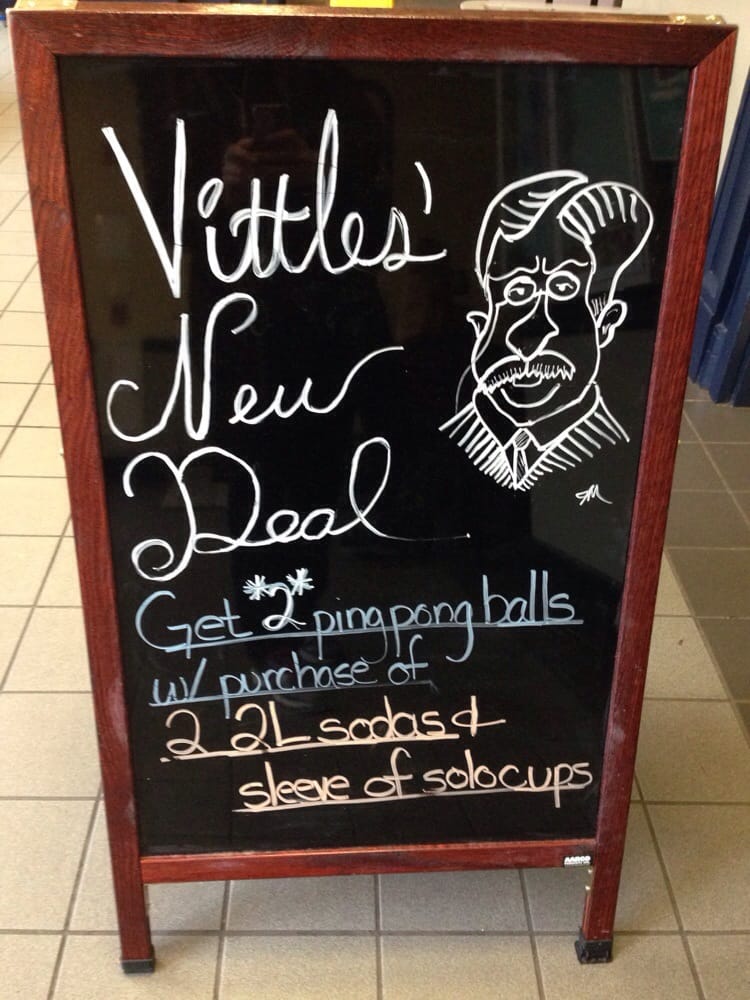 Vittles'
New
Deal
Get *2* ping pong balls
w/ purchase of
2 2L sodas &
sleeve of solo cups
JM
AARCO